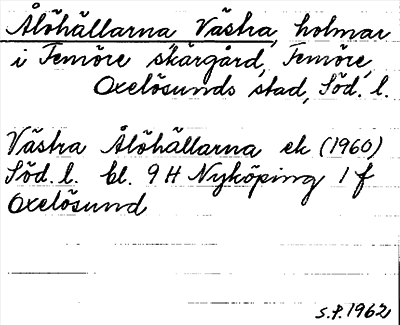 Ålöhällarna, Västra, holmar
i Femöre skärgård, Femöre,
Oxelösunds stad, Söd. l.
Västra Ålöhällarna ek (1960)
Söd. l. bl. 9 H Nyköping 1 f
Oxelösund
S.P. 1962